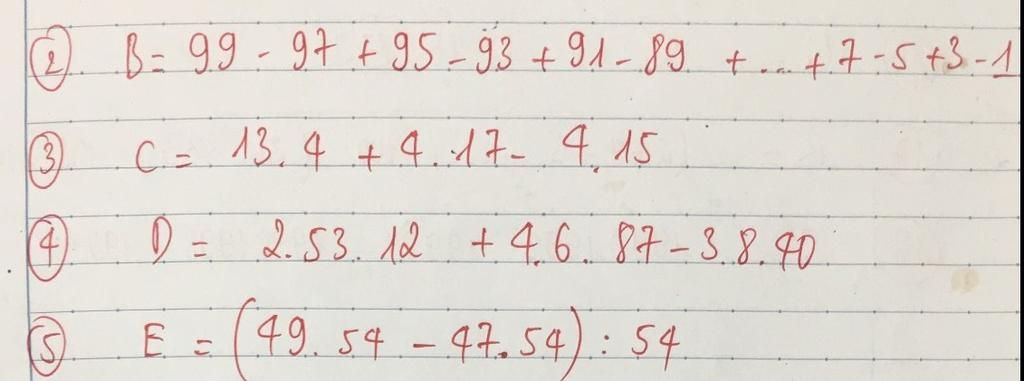 ② B = 99 - 97 + 95 - 93 + 91 - 89 + ... + 7 - 5 + 3 - 1
③ C = 13.4 + 4.17 - 4.15
④ D = 2.53.12 + 4.6.87 - 3.8.40
⑤ E = (49.54 - 47.54) : 54